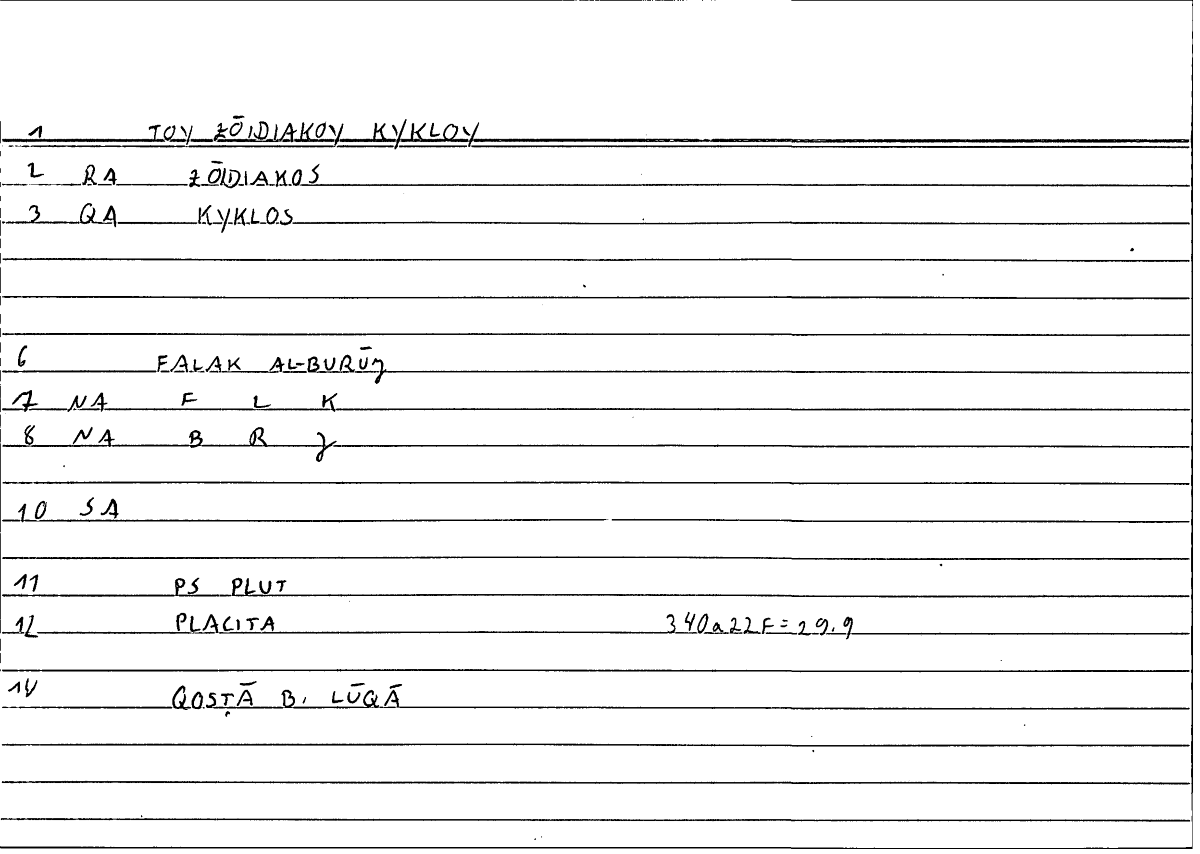 1 TOY ZŌIDIAKOY KYKLOY
2 RA ZŌIDIAKOS
3 QA KYKLOS
6 FALAK AL-BURŪȷ
7 NA F L K
8 NA B R ȷ
10 SA
11 PS PLUT
12 PLACITA 340a22F=29.9
14 QOSṬĀ B. LŪQĀ